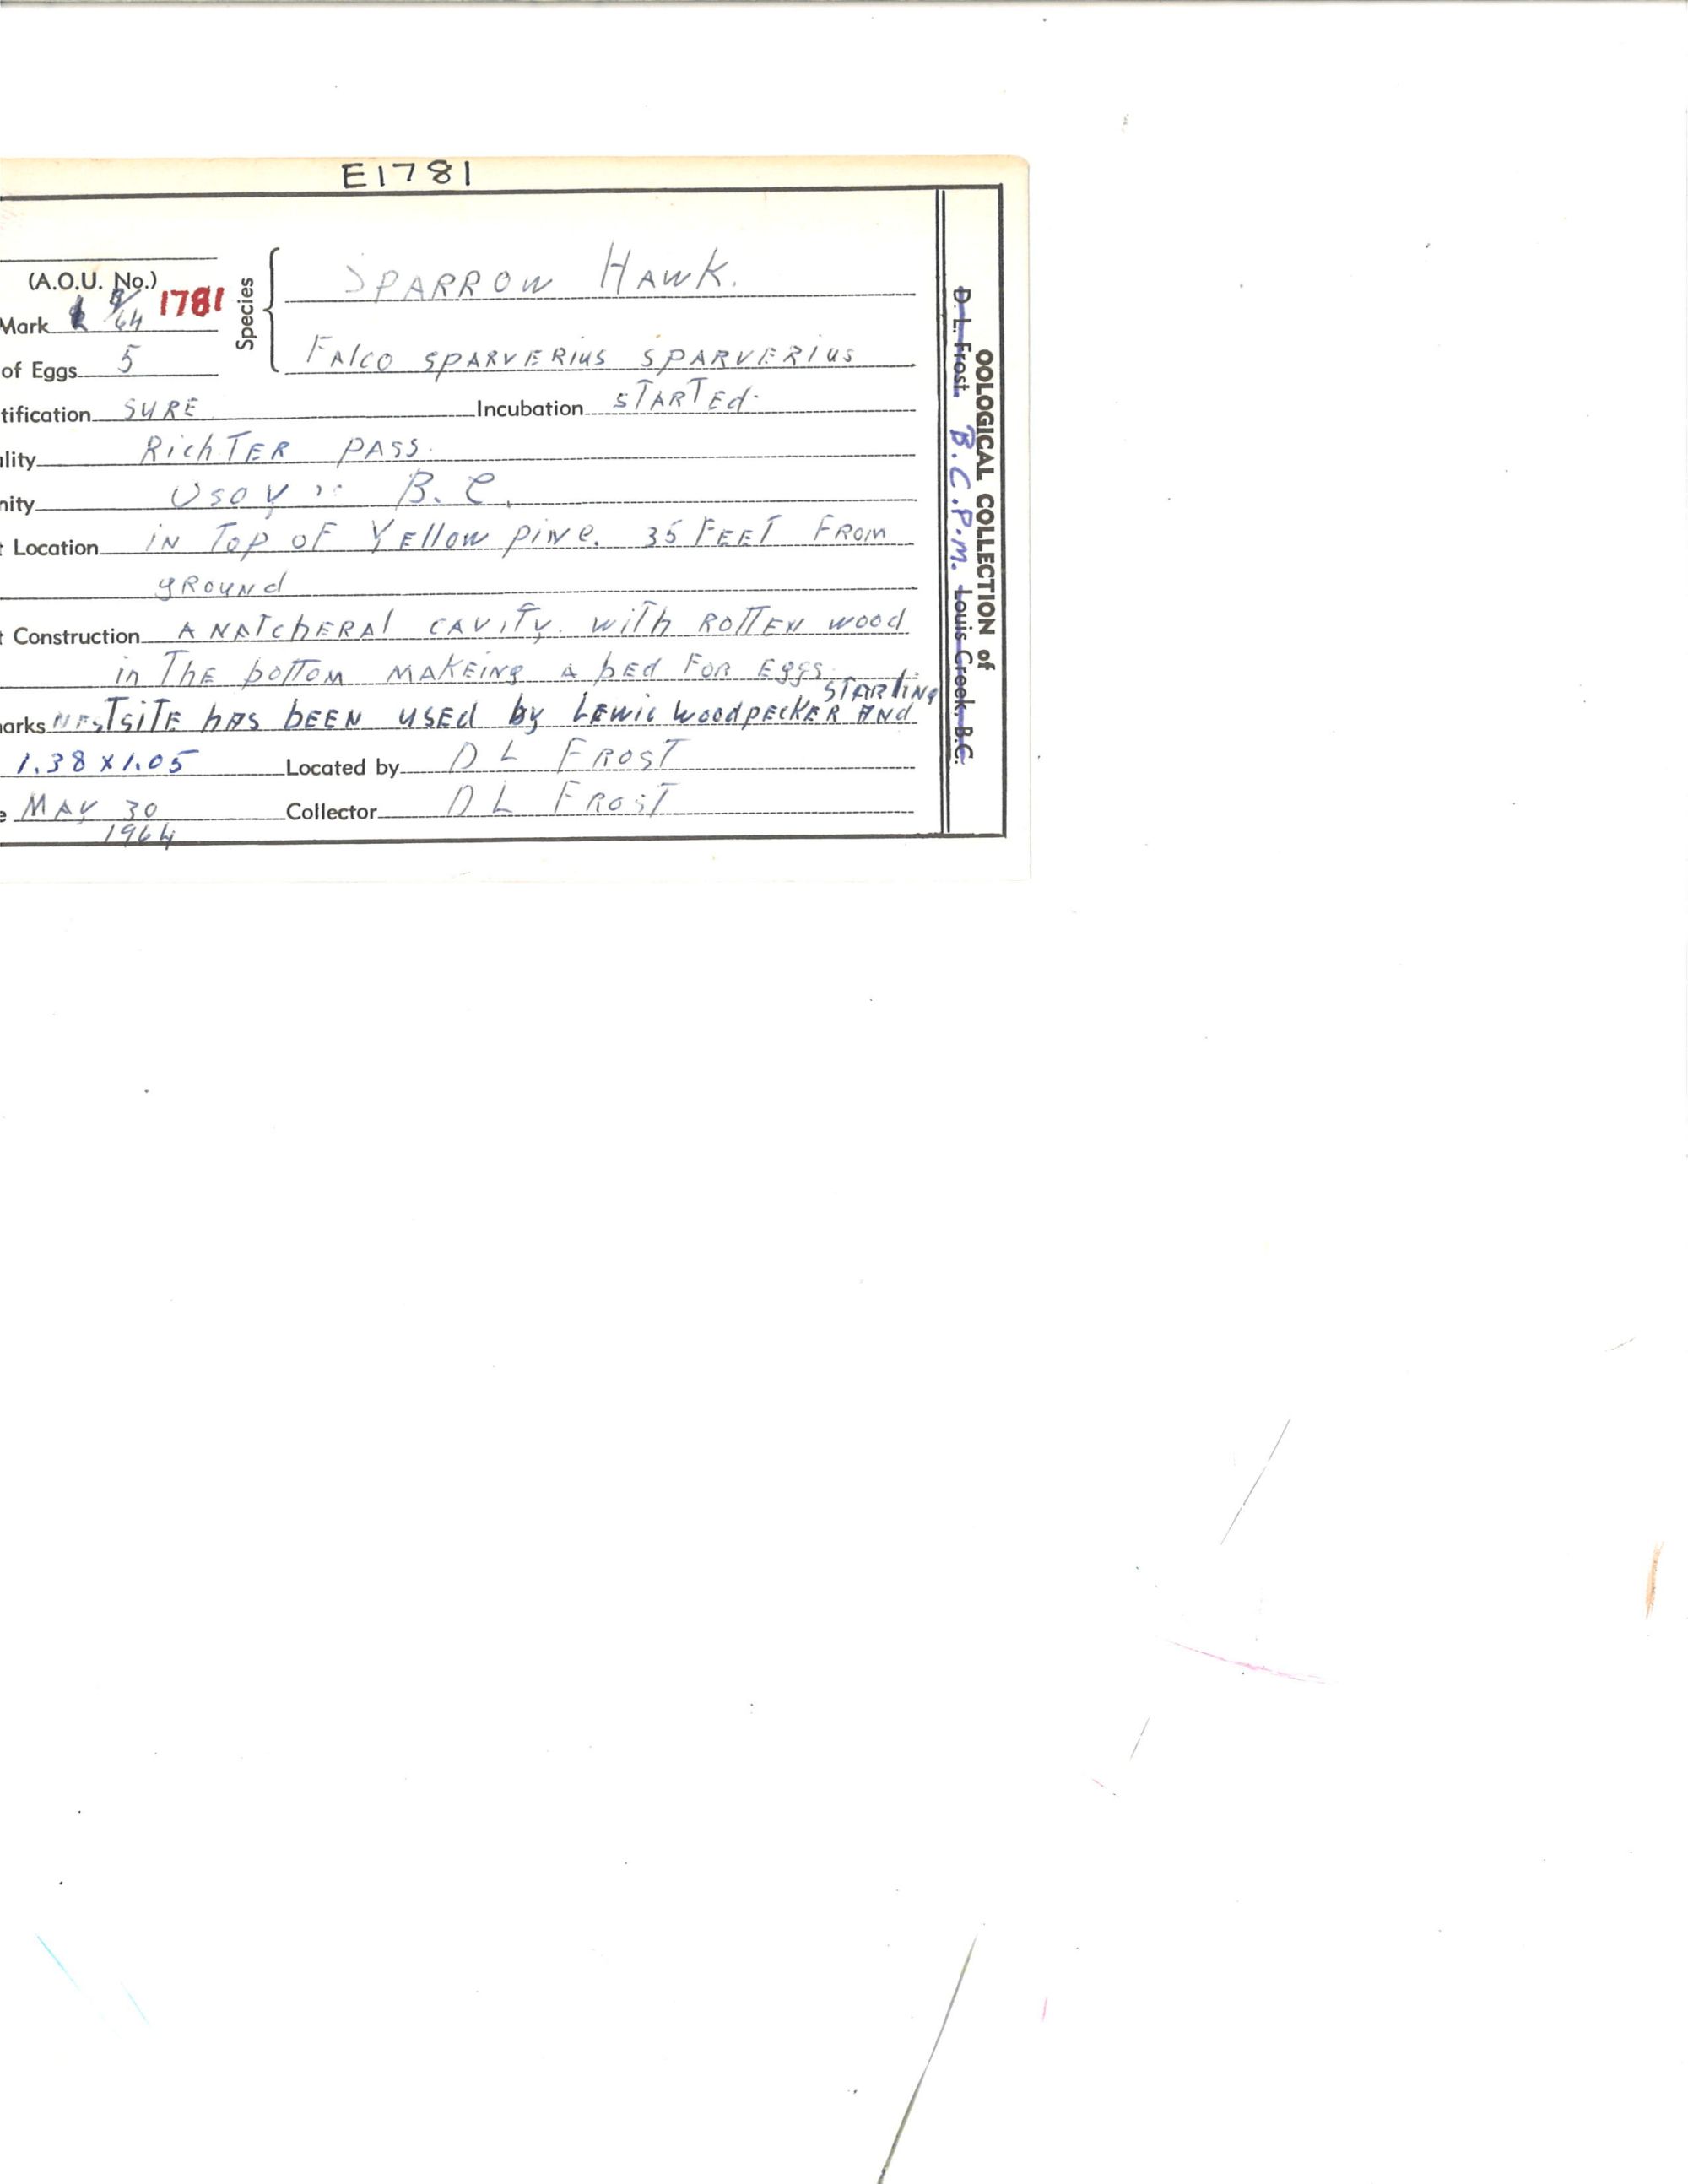 E1781
(A.O.U. No.)
Mark 64 1781
Species
SPARROW HAWK.
of Eggs 5
FALCO SPARVERIUS SPARVERIUS
tification SURE Incubation STARTEd.
lity RichTER PASS.
nity B.C.
Location iN Top OF YEllow piNe. 35 FEET FROM
gROUNd
Construction A NATchERAl CAViTy. wiTh ROTTEN wood
in ThE boTTom MAKEiNg A bEd FOR Eggs.
STARliNg
arks NESTSiTE hAS bEEN USEd by LEwic WoodpEcKER ANd
1.38 x 1.05 Located by D L FROST
e MAY 30 Collector D L FROST
1964
OOLOGICAL COLLECTION of
D. L. Frost. B.C.P.M. Louis Creek, B.C.